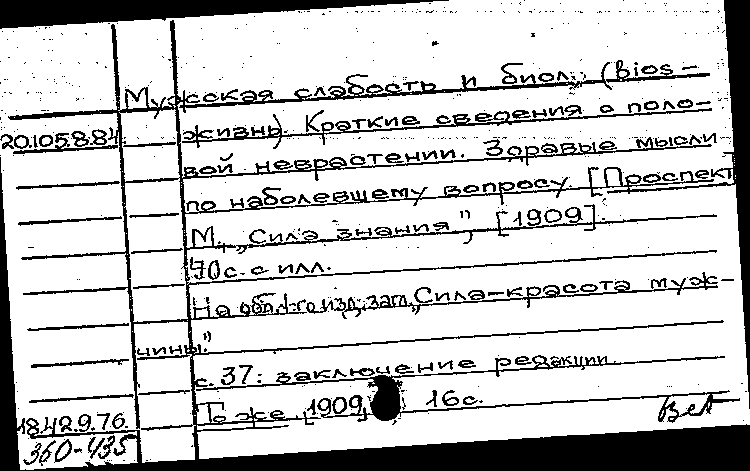 Мужская слабость и биол. (Bios-
20.105.8.84. жизнь). Краткие сведения о поло-
вой неврастении. Здравые мысли
по наболевшему вопросу. [Проспект
М., „Сила знания", [1909].
70 с. с илл.
На обл. 1-го изд. загл. „Сила-красота муж-
чины."
с. 37: заключение редакции.
18.42.9.76. То же [1909] 16 с.
350-435